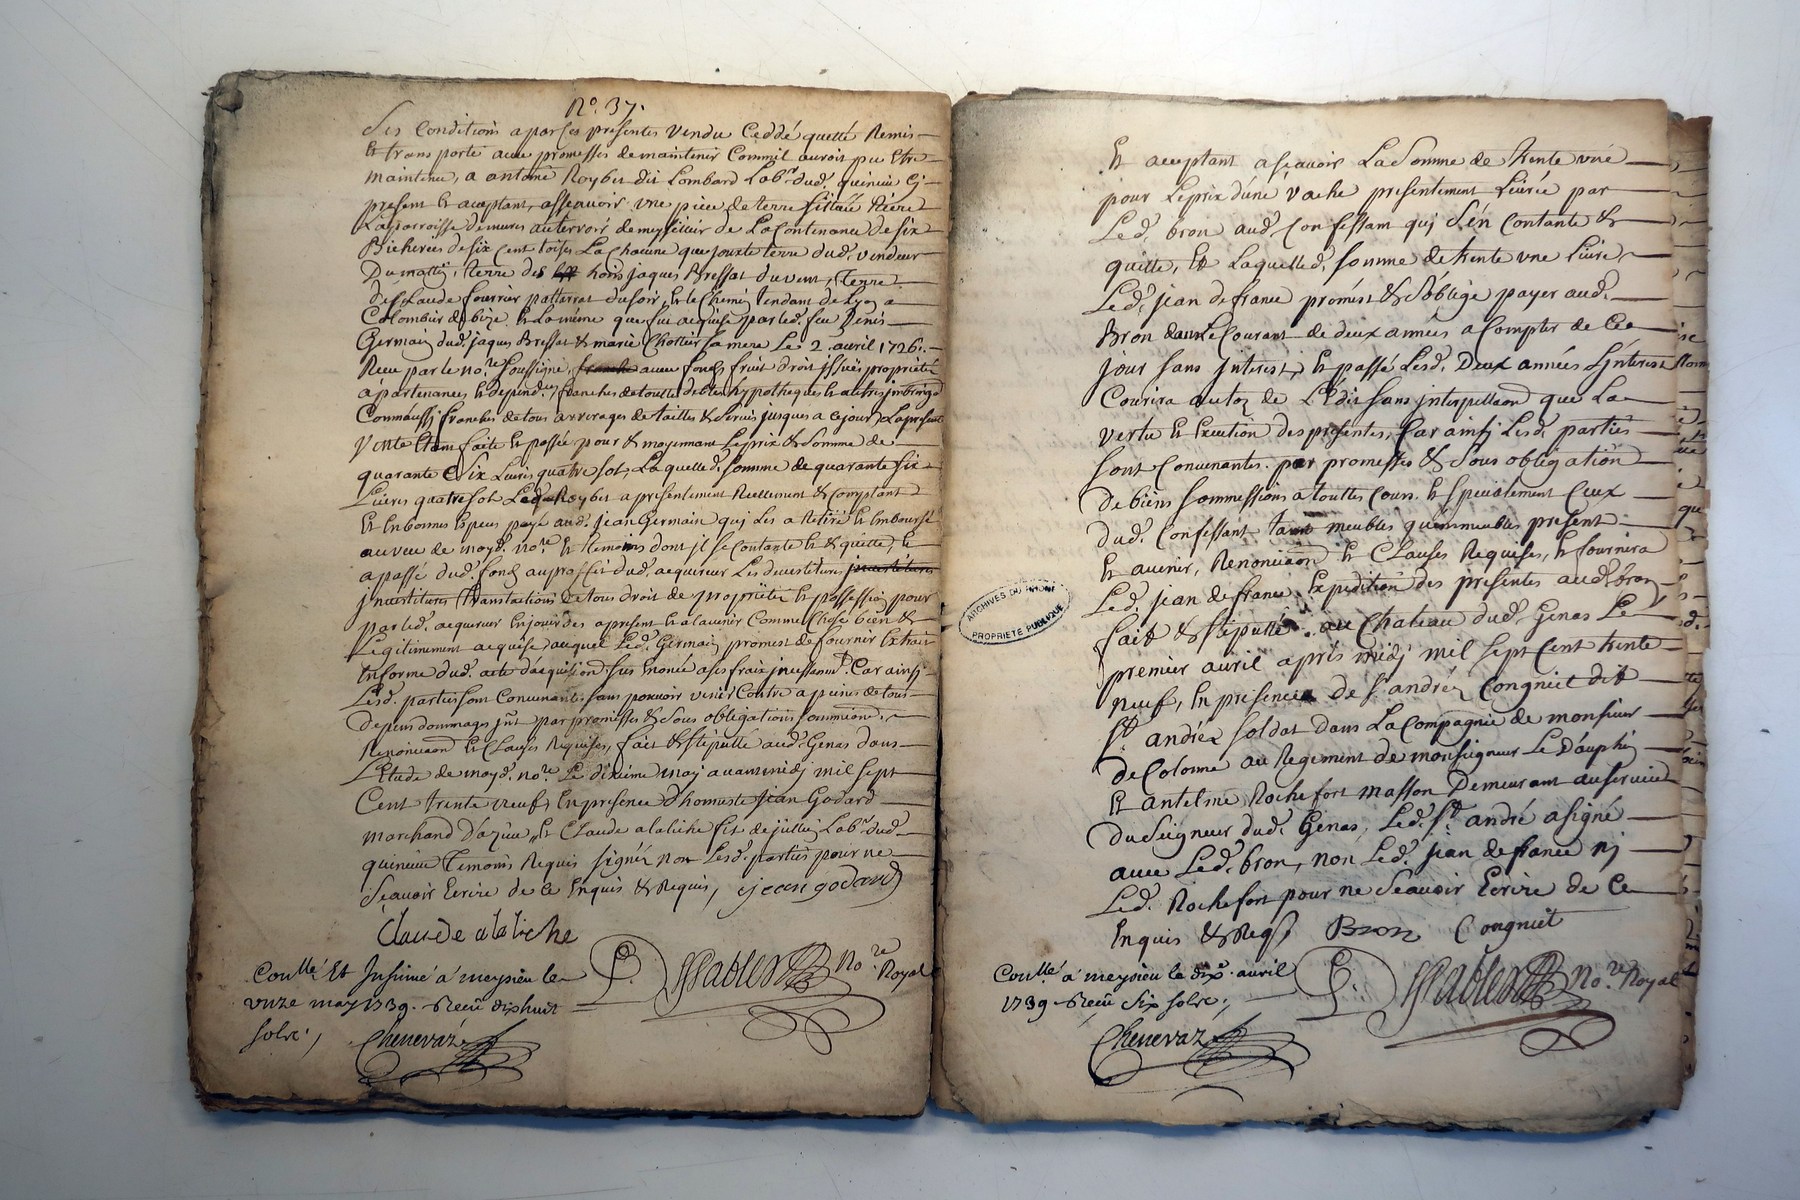 No. 37.
Ses Conditions a par ses presentes vendu Ceddé quetté Remis
Et transporté avec promesses de maintenir Comme il auroit pu Etre
maintenu, a antoine Roybet dit Lombard Labr. dud. quincieu Cy
present Et acceptant, assçavoir une piece de terre sittuée Riere
La parroisse de mures au terroir de meyssieu de La Contenance de six
Bicherées de six Cent toises La Chacune que jouxte terre dud. vendeur
Du mattin, terre des hoirs jaques Bressat du vent, terre
de Claude fourrier du soir, Et le Chemin tendant de Lyon a
Colombier de bize Et La même que fut acquise par led. feu Denis
Germain dud. jaques Bressat & marie sa mere Le 2. avril 1726.
Receu par le nore. soussigné, avec fonds fruit droit issües propriété
apartenances Et depend. franches de touttes debtes hypotheques Et autres
Comm'aussy franches de tous arrerages de tailles & servis jusques a ce jour, La presente
vente Etant faite Et passée pour & moyennant Le prix & Somme de
quarante Six Livres quatre sol, Laquelle d. somme de quarante six
Livres quatre sol Led. Roybet a presentement Reellement & Comptant
Et En bonnes Especes payé aud. jean Germain qui Les a Retiré Et Emboursé
au veu de moyd. nore. Et temoins dont il se Contante Et & quitte, Et
a passé dud. fond au proffit dud. acquereur Les devestitures investitures
investitures Translactions de tous droit de propriété Et possession pour
par led. acquereur En jouir des a present Et a l'avenir Comme Chose bien &
Legitimement acquise auquel Led. Germain promest de fournir Extrait
En forme dud. acte d'acquisition sus Enoncé a ses fraix incessamt. Car ainsy
Lesd. parties sont Convenants sans pouvoir venir Contre a peines de tous
Depens dommages jnt. par promesses & sous obligations soumissions,
Renonciaon Et Clauses Requises, fait & stipullé aud. Genas dans
L'Etude de moyd. nore. Le dixieme may avant midy mil sept
Cent trente neuf, En presence d'honneste jean Godard
marchand D'azieu, Et Claude alaliche fis de jullien Labr. dud.
quincieu Temoins Requis signés non Lesd. parties pour ne
Sçavoir Ecrire de Ce Enquis & Requis, jean godard
Claude alaliche
Coullé Et Insinué a meyzieu le
unze may 1739. Receu dixhuit
sols.
Chenevaz
P. Sablier Nore. Royal
Et acceptant a sçavoir La Somme de Trente une
pour Le prix d'une vache presentement Livrée par
Led. bron aud. Confessant qui s'en Contante &
quitte, Et Laquelle d. somme de trente une Livre
Led. jean de france promest & s'oblige payer aud.
Bron dans Le Courant de deux années a Compter de Ce
jour sans interest, Et passé Lesd. Deux années L'interest
Courira au toz de L'Edit sans interpellaon que La
vertu Et Execution des presentes, Car ainsy Lesd. parties
sont Convenantes par promesses & sous obligation
de biens soummissions a touttes Cours Et specialement Ceux
dud. Confessant Tant meubles qu'immeubles present
Et avenir, Renonciaon Et Clauses Requises, Et fournira
Led. jean de france Expedition des presentes aud. bron,
fait & stipullé au Chateau dud. Genas Le
premier avril apres midy mil sept Cent trente
neuf, En presence De Sr. andré Congniet dit
St. andré soldat dans La Compagnie de monsieur
de Colonne au Regiment de monseigneur Le Dauphin
Et antelme Rochefort masson Demeurant au service
Du seigneur dud. Genas, Led. St. andré a signé
avec Led. bron, non Led. jean de france ny
Led. Rochefort pour ne Sçavoir Ecrire de Ce
Enquis & Reqs. Bron Congniet
Coullé a meyzieu le dixe. avril
1739. Receu six sols.
Chenevaz
P. Sablier Nore. Royal
ARCHIVES DU RHONE
PROPRIÉTÉ PUBLIQUE